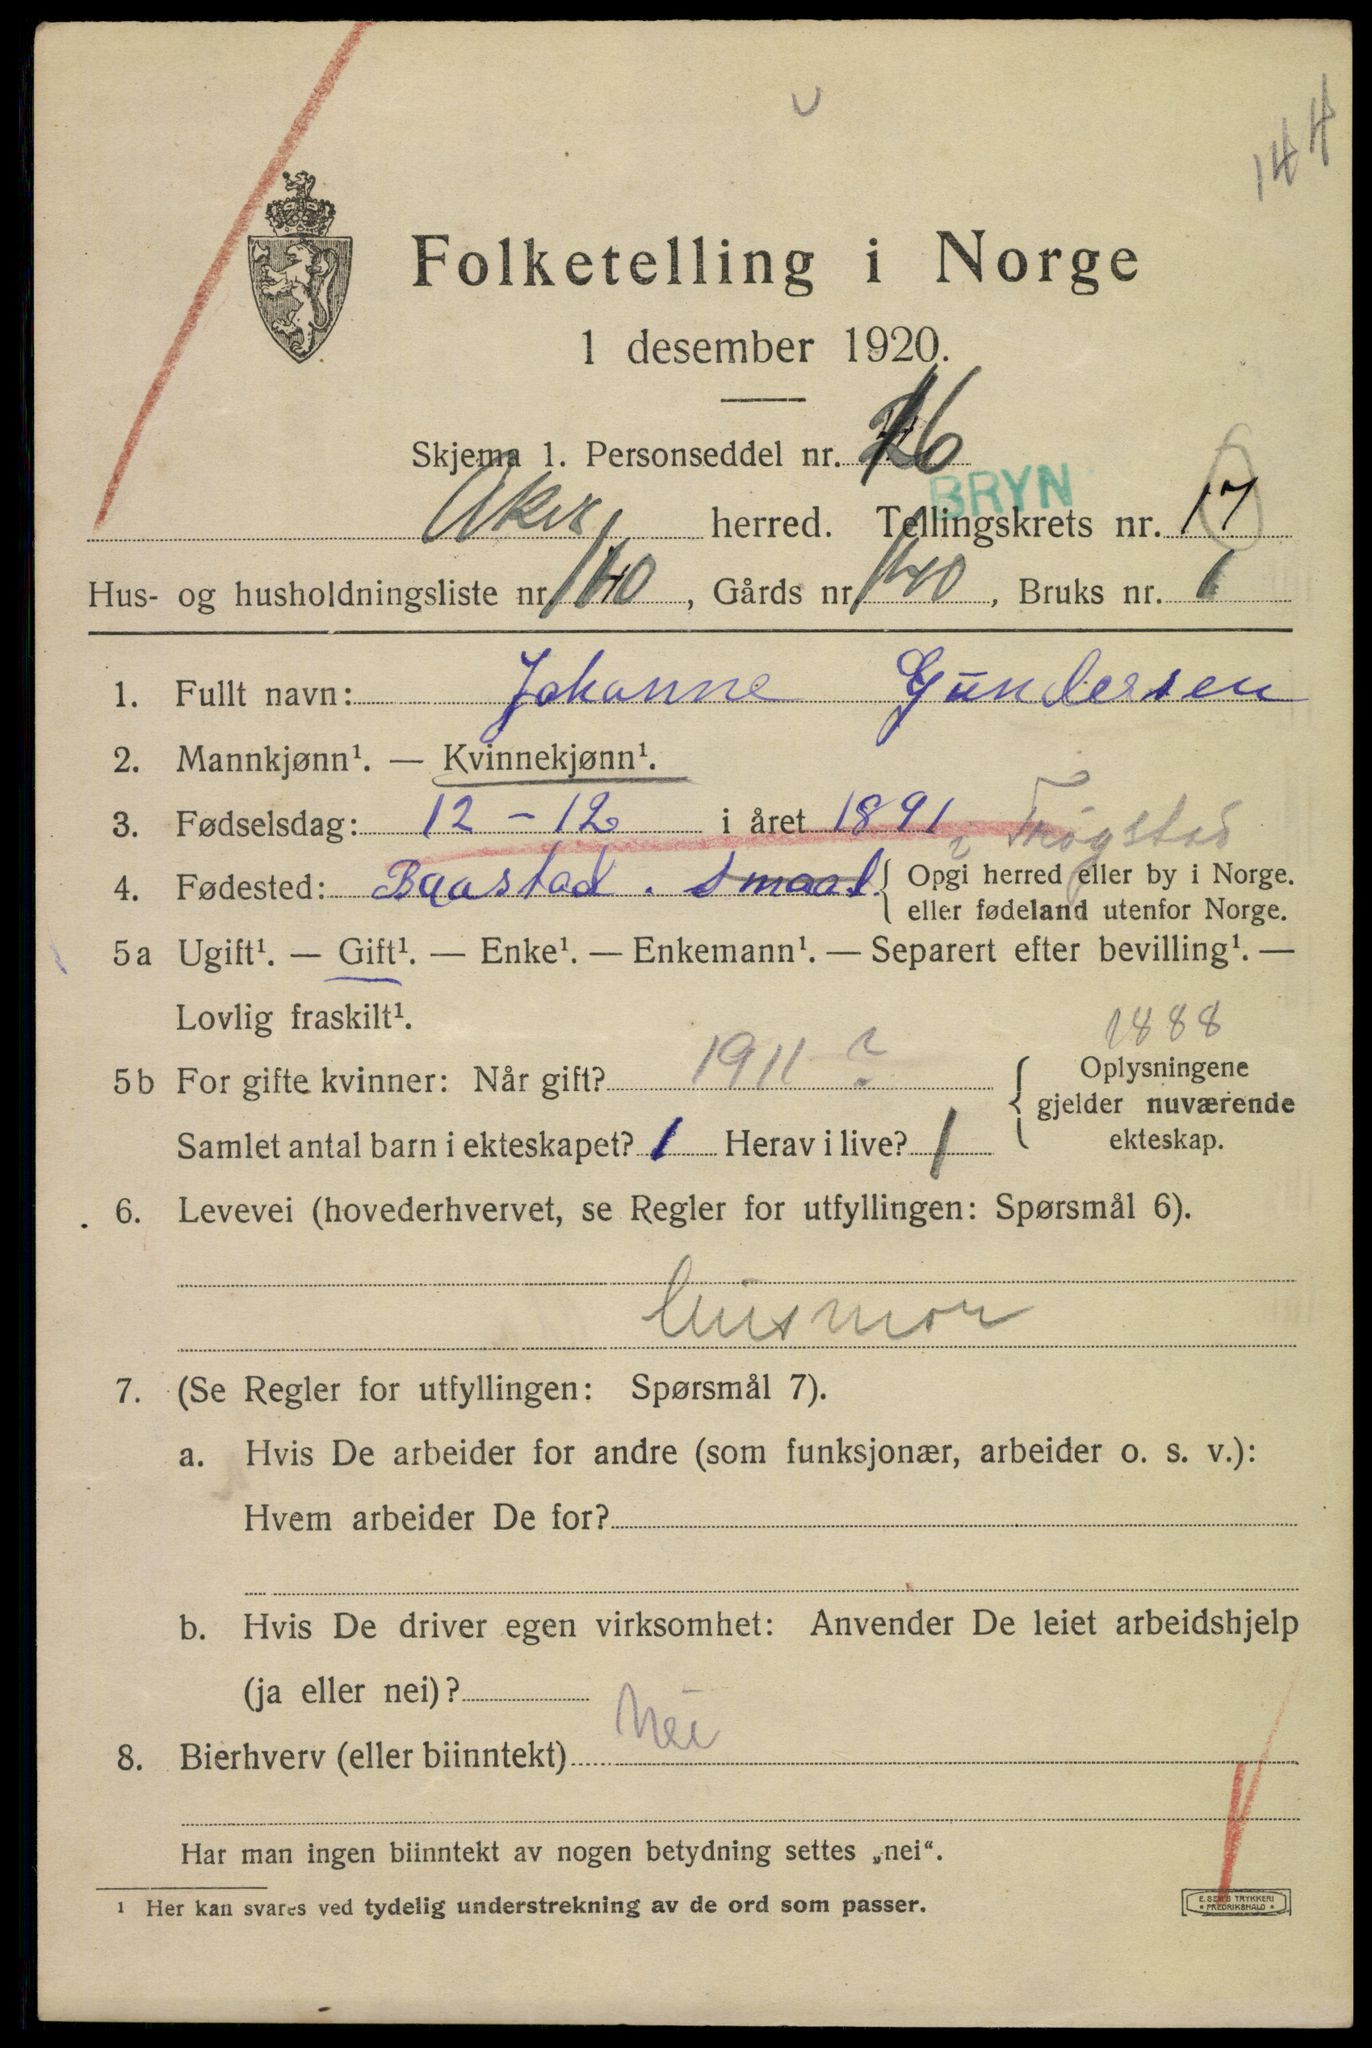 144
Folketelling i Norge
1 desember 1920.
Skjema 1. Personseddel nr. 16
BRYN
Aker herred. Tellingskrets nr. 17
Hus- og husholdningsliste nr. 140, Gårds nr. 140, Bruks nr. 1
1. Fullt navn: Johanne Gundersen
2. Mannkjønn¹. — Kvinnekjønn¹.
3. Fødselsdag: 12 - 12 i året 1891
i Trøgstad
4. Fødested: Baastad. Smaal. { Opgi herred eller by i Norge.
eller fødeland utenfor Norge.
5a Ugift¹. — Gift¹. — Enke¹. — Enkemann¹. — Separert efter bevilling¹. —
Lovlig fraskilt¹.
1888
5b For gifte kvinner: Når gift? 1911 ? { Oplysningene
gjelder nuværende
ekteskap.
Samlet antal barn i ekteskapet? 1 Herav i live? 1
6. Levevei (hovederhvervet, se Regler for utfyllingen: Spørsmål 6).
Husmor
7. (Se Regler for utfyllingen: Spørsmål 7).
a. Hvis De arbeider for andre (som funksjonær, arbeider o. s. v.):
Hvem arbeider De for?
b. Hvis De driver egen virksomhet: Anvender De leiet arbeidshjelp
(ja eller nei)?
8. Bierhverv (eller biinntekt) Nei
Har man ingen biinntekt av nogen betydning settes „nei“.
¹ Her kan svares ved tydelig understrekning av de ord som passer.
E. SEM'S TRYKKERI
FREDRIKSHALD